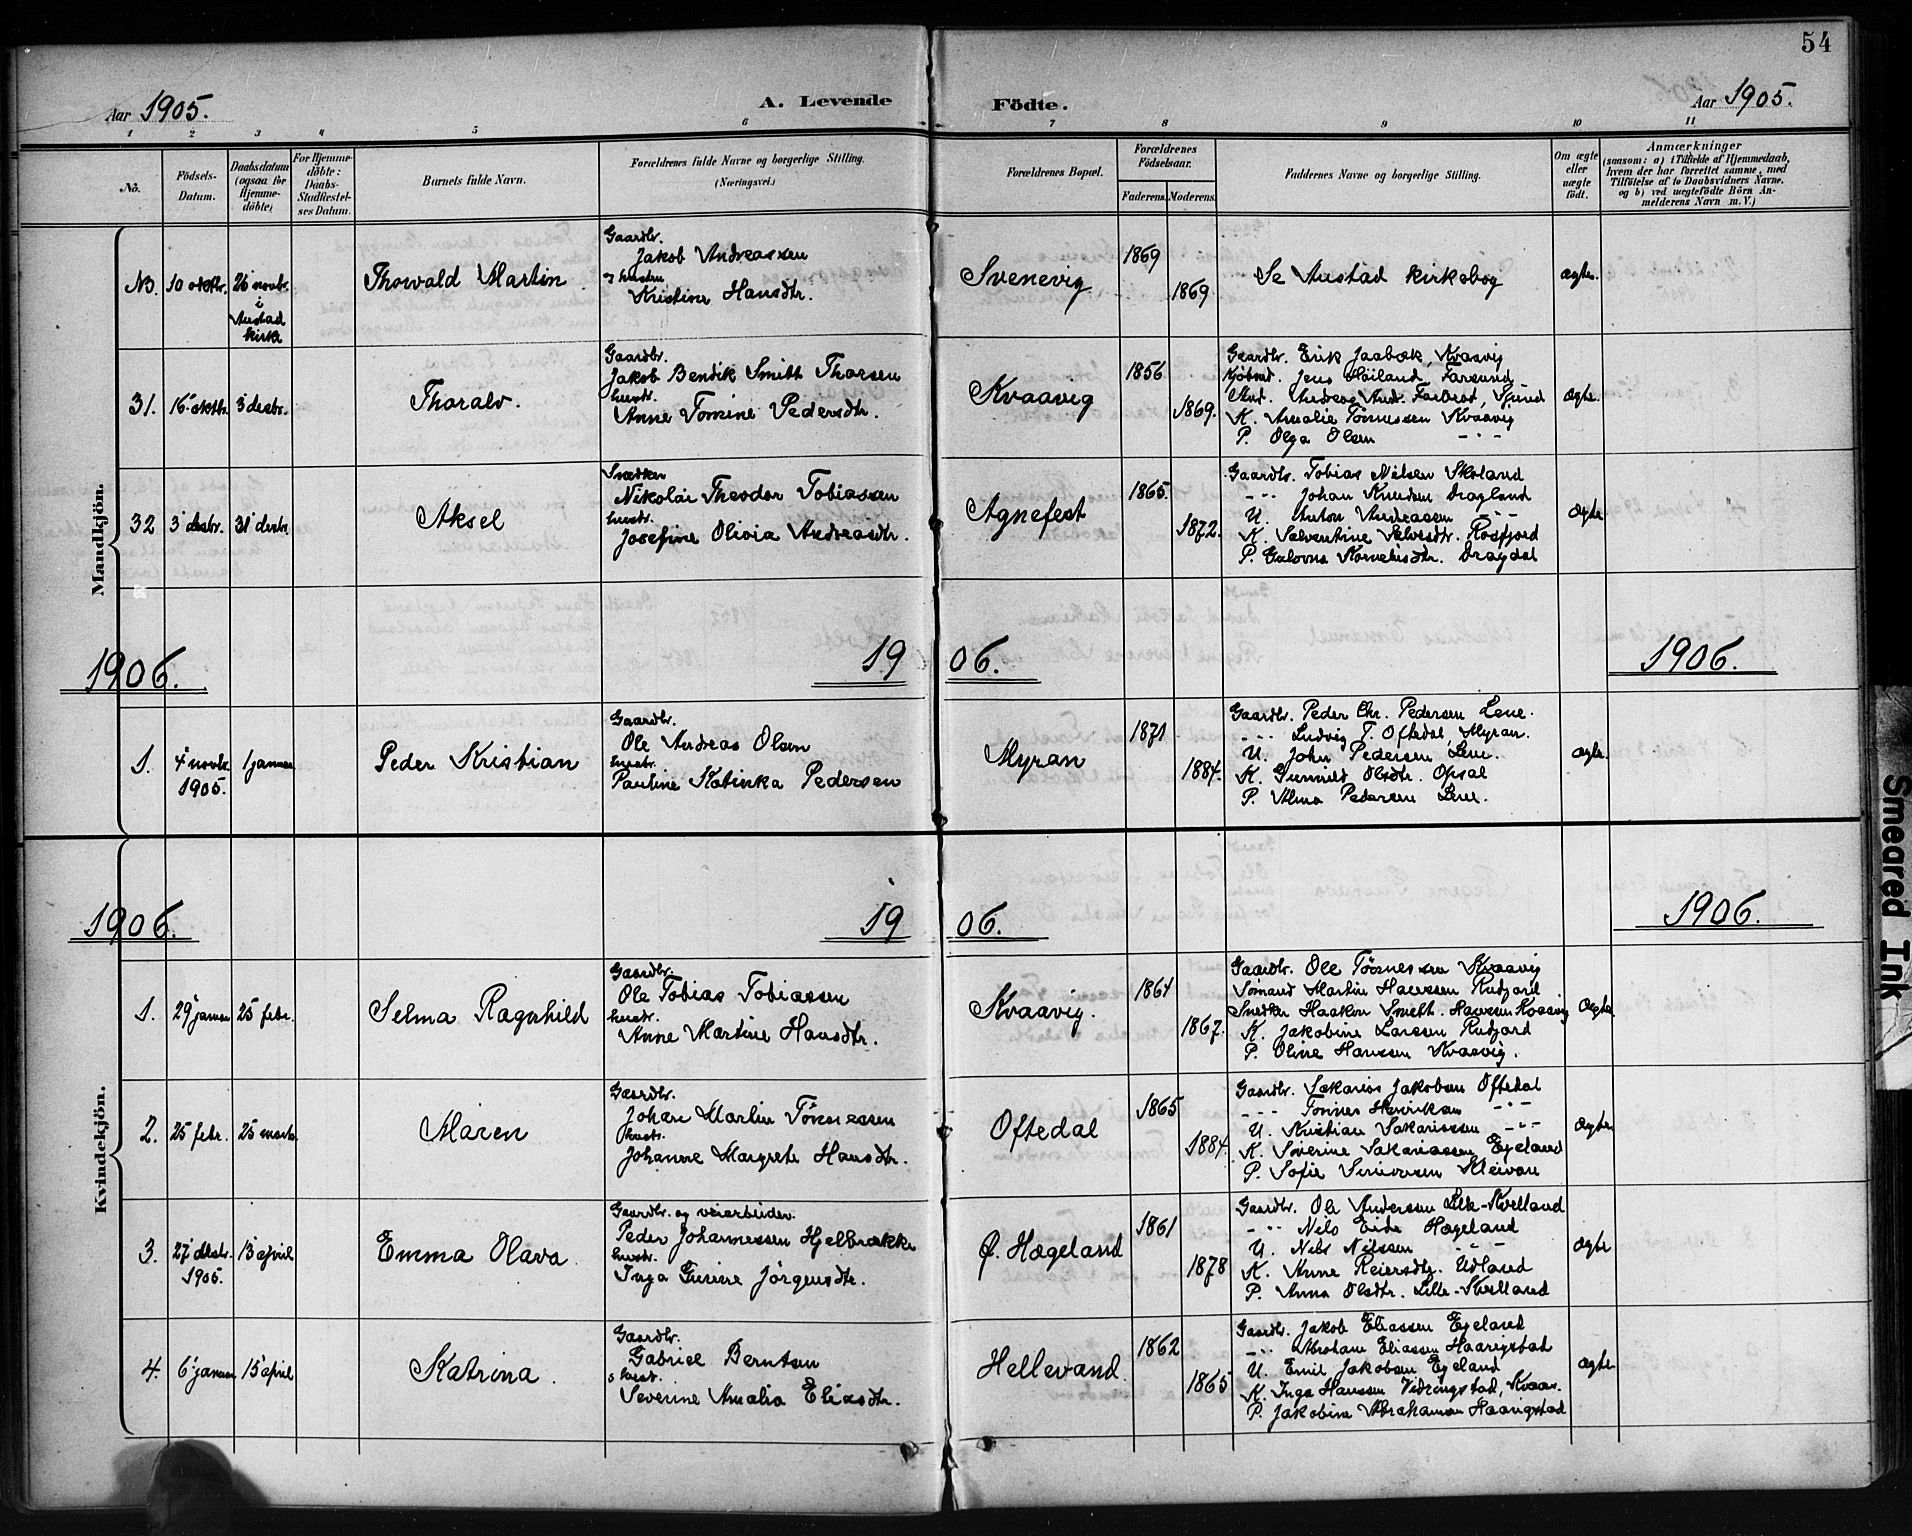 54
Aar 1905.
A. Levende Födte.
Aar 1905.
1 2 3 4 5 6 7 8 9 10 11
No.
Födsels-Datum.
Daabsdatum (ogsaa for Hjemme-döbte)
For Hjemme-döbte: Daabs-Stadfæstel-ses Datum.
Barnets fulde Navn.
Forældrenes fulde Navne og borgerlige Stilling.
(Næringsvei.)
Forældrenes Bopæl.
Forældrenes Födselsaar.
Faderens. Moderens.
Faddernes Navne og borgerlige Stilling.
Om ægte eller uægte födt.
Anmærkninger
(saasom: a) i Tilfælde af Hjemmedaab,
hvem der har forrettet samme, med
Tilföielse af to Daabsvidners Navne.
og b) ved uægtefödte Börn An-
melderens Navn m. V.)
Mandkjön.
NB. 10 oktbr. 26 novbr. i Austad kirke
Thorvald Martin
Gaardbr.
Jakob Andreassen
Kristine Hansdtr.
Svenevig
1869
1869
Se Austad kirkebog
ægte.
31. 16 oktbr. 3 desbr.
Thoralv.
Gaardbr.
Jakob Bendik Smitt Thorsen
hustr.
Anne Tomine Pedersdtr.
Kvaavig
1856
1869.
Gaardbr. Erik Jaabæk, Kvaavig
Jens Höiland, Farsund
K. Amalie Tönnessen Kvaavig
P. Olga Olsen - " -
ægte.
32 3 desbr. 31 desbr.
Aksel
Snedker
Nikolai Theodor Tobiassen
hustr.
Josefine Olivia Andreasdtr.
Agnefest
1865.
1872.
Gaardbr. Tobias Nilsen Skoland
- " - Johan Knudsen Dragland
U. Anton Andreassen - " -
K. Salventine Salvesdtr. Rosfjord
P. Kornelusdtr. Dragdal
ægte
1906. 1906. 1906.
1. 4 novbr. 1905. 1 januar
Peder Kristian
Gaardbr.
Ole Andreas Olsen
hustr.
Pauline Katinka Pedersen
Myran
1871
1884.
Gaardbr. Peder Chr. Pedersen Lene.
- " - Ludvig T. Oftedal, Myran.
U. John Pedersen Lene.
K. Gunnild Olsdtr. Opsal
P. Alma Pedersen Lene.
ægte.
Kvindekjön.
1906. 1906. 1906.
1. 29 januar 25 febr.
Selma Ragnhild
Gaardbr.
Ole Tobias Tobiassen
hustr.
Anne Martine Hansdtr.
Kvaavig.
1864
1867.
Gaardbr. Ole Tönnessen Kvaavig
Sömand Martin Hanssen Rudjord
Snedker Haakon Smith Hanssen Kvaavig
K. Jakobine Larssen Rudjord
P. Oline Hanssen Kvaavig.
ægte
2. 25 febr. 25 marts
Maren
Gaardbr.
Johan Martin Tönnessen
hustr.
Johanne Margrete Hansdtr.
Oftedal
1865
1884.
Gaardbr. Sakarias Jakobsen Oftedal
- " - Tönnes Henriksen - " -
U. Kristian Sakariassen - " -
K. Severine Sakariassen Egeland
P. Sofie Kleivan
ægte
3. 27 desbr. 1905. 13 april
Emma Olava.
Gaardbr. og veiarbeider
Peder Johannessen Hjelbrække
hustr.
Inga Gurine Jörgensdtr.
Ø. Hægeland
1861
1878
Gaardbr. Ole Anderssen Lille-Kvelland
- " - Nils Eide Hægeland
U. Nils Nilssen - " -
K. Anne Reiersdtr. Udland
P. Anna Olsdtr. Lille-Kvelland
ægte
4. 6 januar 15 april
Katrina.
Gaardbr.
Gabriel Berntsen
Severine Amalia Eliasdtr.
Hellevand.
1862
1865
Gaardbr. Jakob Eliassen Egeland
- " - Abraham Eliassen Haarigstad
U. Emil Jakobsen Egeland
K. Inga Hanssen Vidringstad, Kvaas.
P. Jakobine Abrahamsen Haarigstad
ægte
Smeared Ink